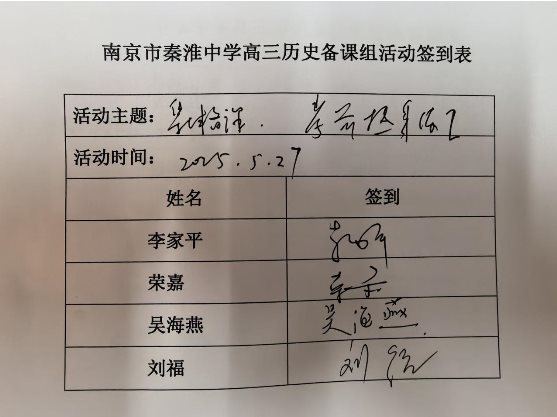 南京市秦淮中学高三历史备课组活动签到表
活动主题: 考前
活动时间: 2025.5.27
姓名 签到
李家平 李家平
荣嘉 荣嘉
吴海燕 吴海燕
刘福 刘福